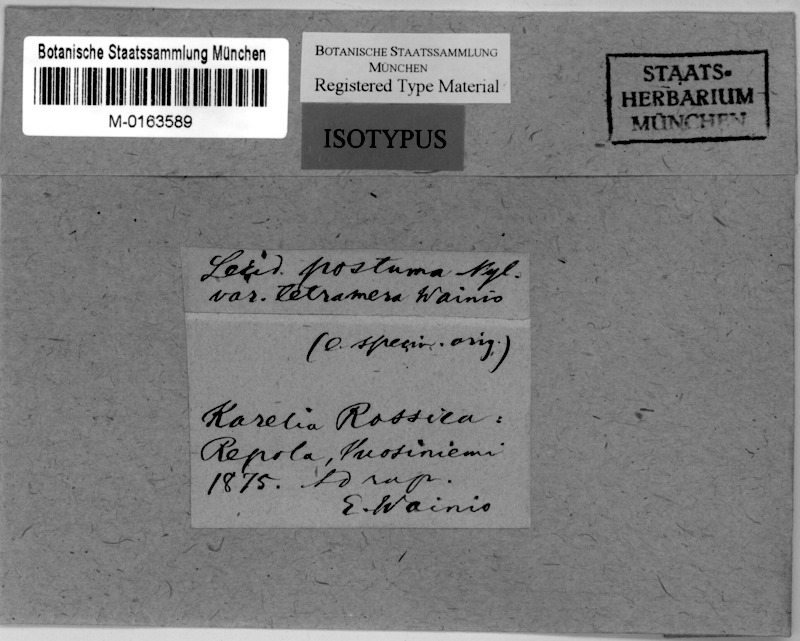 Botanische Staatssammlung München
M-0163589
BOTANISCHE STAATSSAMMLUNG
MÜNCHEN
Registered Type Material
ISOTYPUS
STAATS-
HERBARIUM
MÜNCHEN
Lecid. postuma Nyl.
var. tetramera Wainio
(e. specim. orig.)
Karelia Rossica:
Repola, Vuosiniemi
1875. Ad rup.
E. Wainio